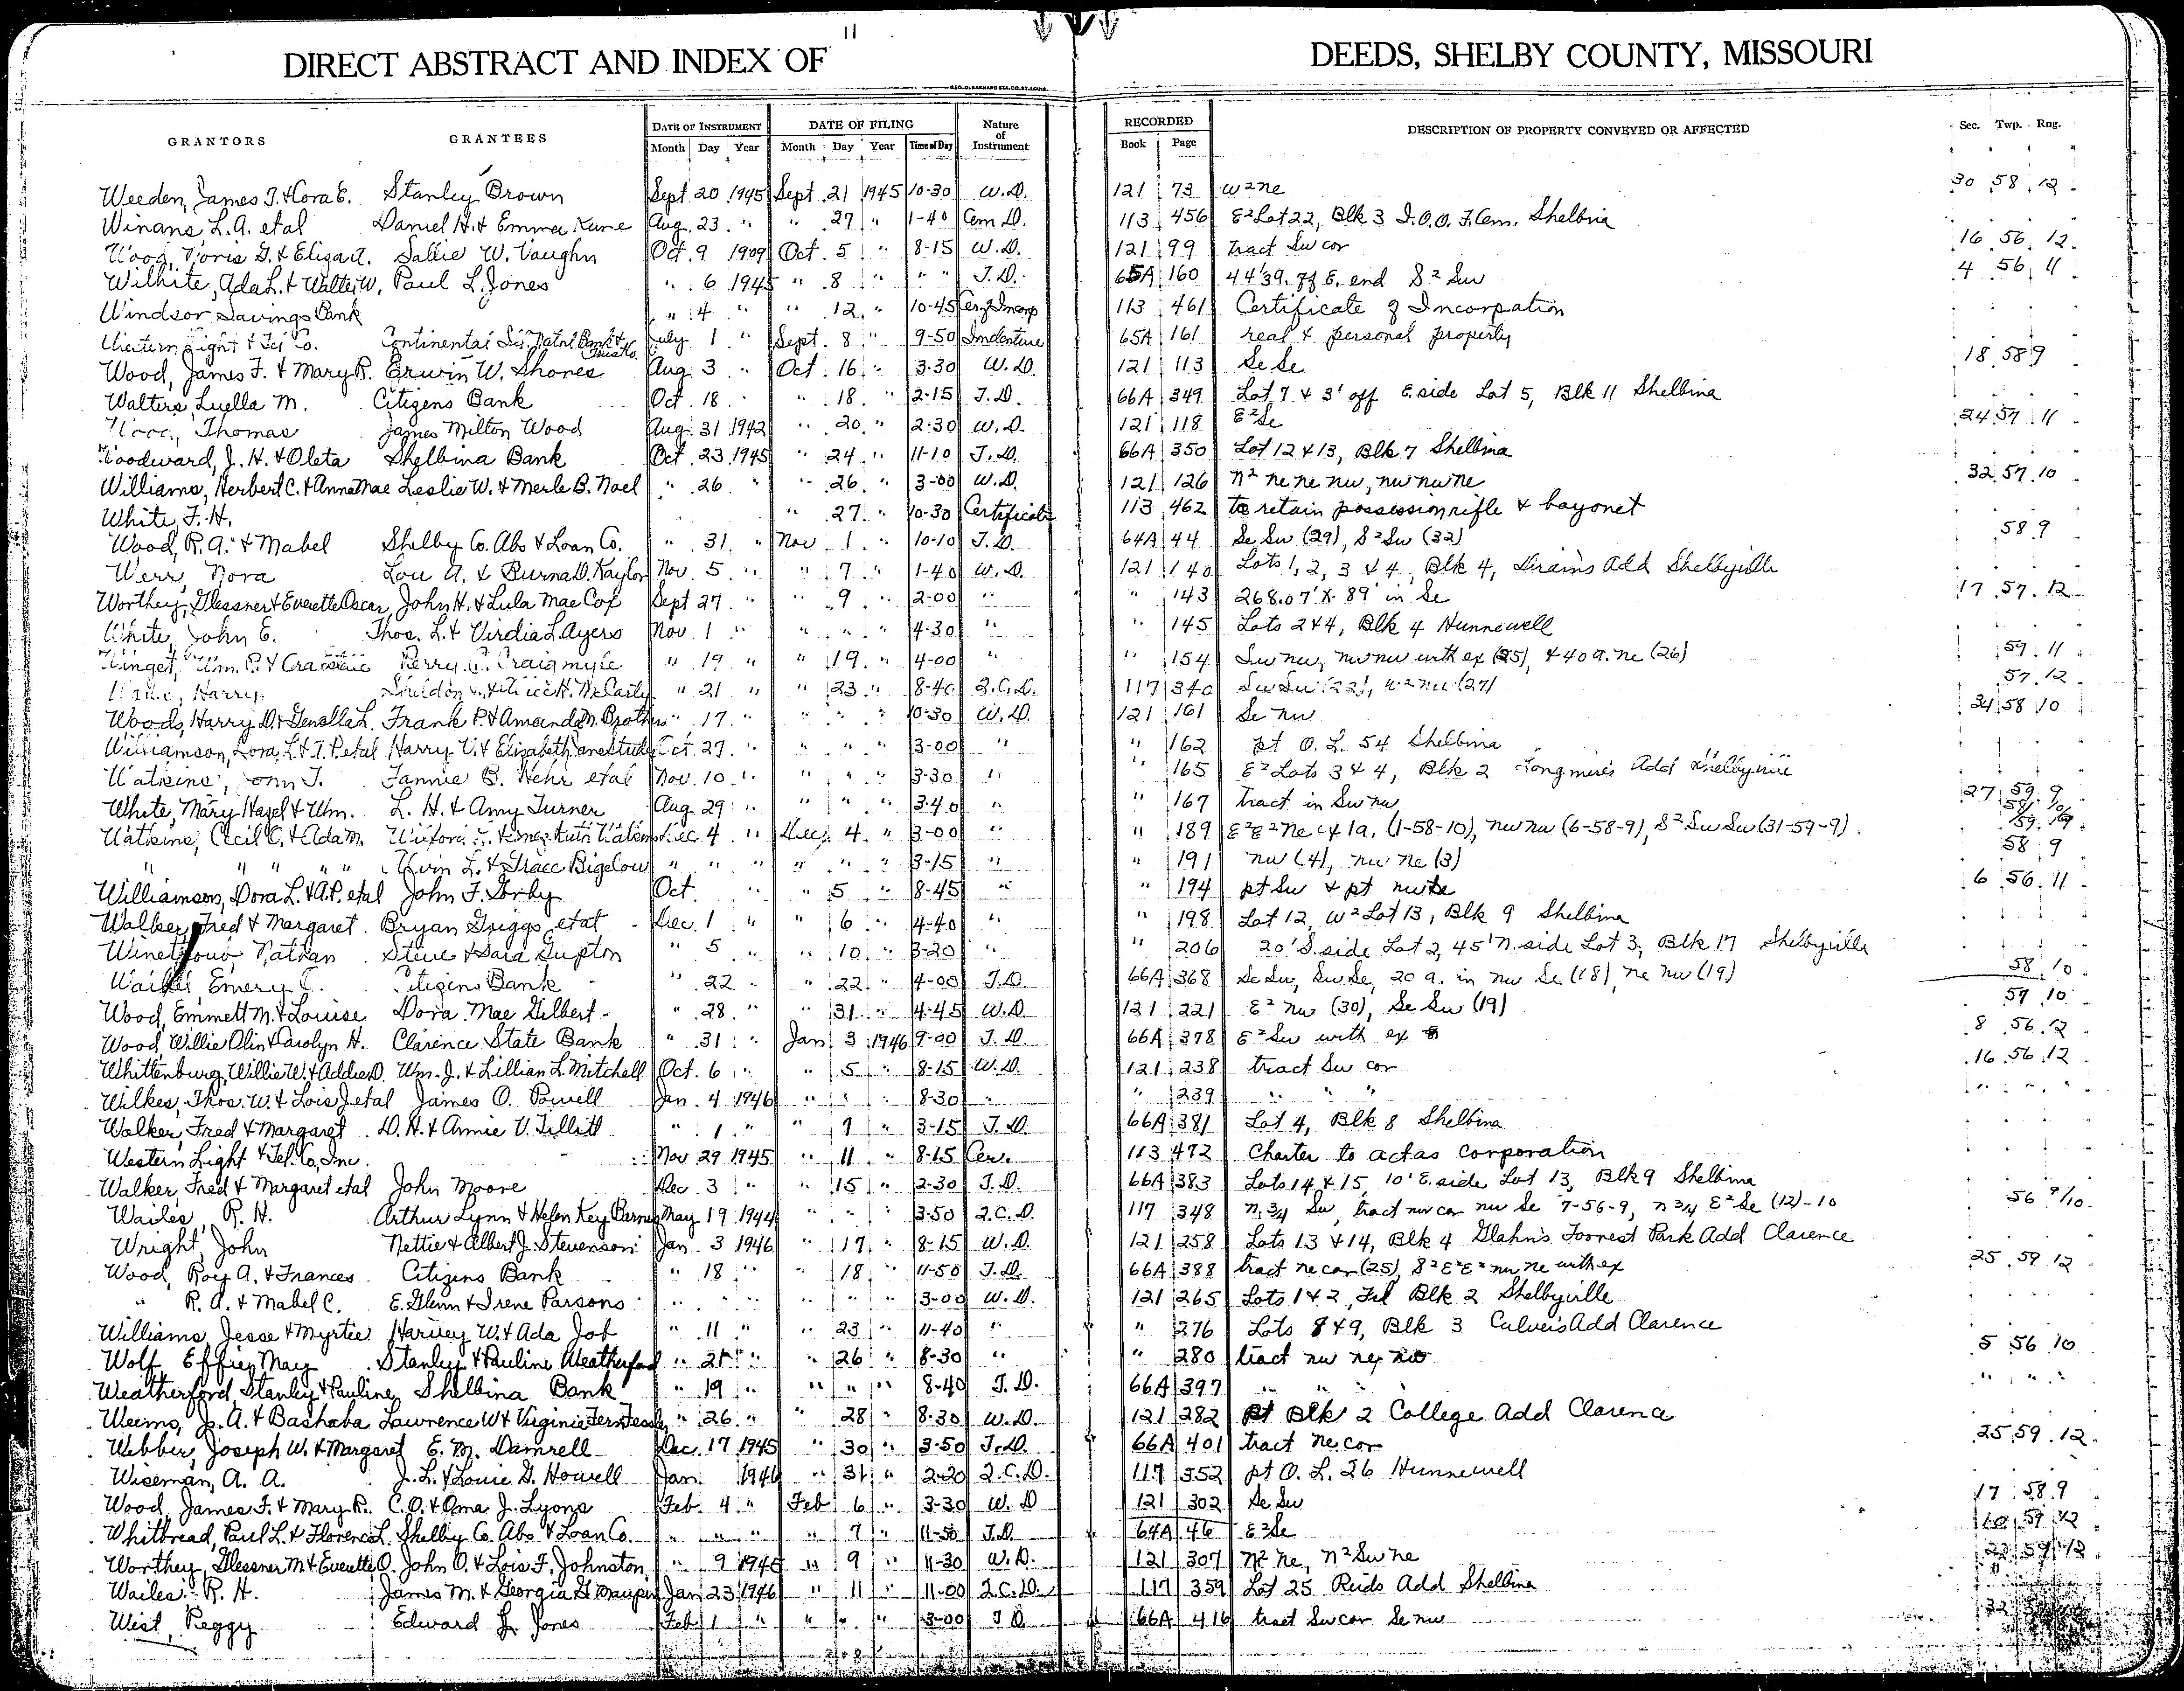 11
DIRECT ABSTRACT AND INDEX OF DEEDS, SHELBY COUNTY, MISSOURI
GEO. D. BARNARD STA. CO. ST. LOUIS
GRANTORS GRANTEES DATE OF INSTRUMENT DATE OF FILING Nature of Instrument RECORDED DESCRIPTION OF PROPERTY CONVEYED OR AFFECTED Sec. Twp. Rng.
Month Day Year Month Day Year Time of Day Book Page
Weeden, James T. & Cora E. Stanley Brown Sept 20 1945 Sept 21 1945 10-30 W.D. 121 73 W2 ne 30 58 12
Winans L.A. etal Daniel H. & Emma Kane Aug. 23 " " 27 " 1-40 Cem D. 113 456 E2 Lot 22, Blk 3 I.O.O.F. Cem. Shelbina
Sallie W. Vaughn Oct. 9 1909 Oct. 5 " 8-15 W.D. 121 99 tract Sw cor 16 56 12
Wilhite, Ada L. & Walter W. Paul L. Jones " 6 1945 " 8 " " " T.D. 65A 160 44'39. of E. end S2 Sw 4 56 11
Windsor Savings Bank " 4 " " 12 " 10-45 Cer of Incorp 113 461 Certificate of Incorpation
Western Light & Tel Co. Continental Ill. Natnl Bank & Trust Co. July 1 " Sept. 8 " 9-50 Indenture 65A 161 real & personal property
Wood, James F. & Mary R. Erwin W. Shores Aug 3 " Oct. 16 " 3-30 W.D. 121 113 Se Se 18 58 9
Walters, Luella M. Citizens Bank Oct. 18 " " 18 " 2-15 T.D. 66A 349 Lot 7 & 3' off E. side Lot 5, Blk 11 Shelbina
Wood, Thomas James Milton Wood Aug. 31 1942 " 20 " 2-30 W.D. 121 118 E2 Se 24 57 11
Woodward, J. H. & Oleta Shelbina Bank Oct. 23 1945 " 24 " 11-10 T.D. 66A 350 Lot 12 & 13, Blk 7 Shelbina
Williams, Herbert C. & Anna Mae Leslie W. & Merle B. Noel " 26 " " 26 " 3-00 W.D. 121 126 n2 ne ne nw, nw nw ne 32 57 10
White, F. H. " 27 " 10-30 Certificate 113 462 to retain possession rifle & bayonet
Wood, R. A. & Mabel Shelby Co. Abs & Loan Co. " 31 " Nov 1 " 10-10 T.D. 64A 44 Se Sw (29), S2 Sw (32) 58 9
Werr, Nora Lou A. & Burna D. Kaylor Nov. 5 " " 7 " 1-40 W.D. 121 140 Lots 1, 2, 3 & 4, Blk 4, Drains Add Shelbyville
Worthey, Glessner & Everette Oscar John H. & Lula Mae Cox Sept 27 " " 9 " 2-00 " " 143 268.07' X 89' in Se 17 57 12
White, John E. Thos. L. & Virdia L. Ayers Nov. 1 " " " " 4-30 " " 145 Lots 2 & 4, Blk 4 Hunnewell
Perry C. Craigmyle " 19 " " 19 " 4-00 " " 154 Sw nw, nw nw with ex (25), & 40 a. ne (26) 59 11
Harry " 21 " " 23 " 8-40 Q.C.D. 117 340 Sw Sw (22), W2 nw (27) 57 12
Woods, Harry D. & Genella L. Frank P. & Amanda M. Brothers " 17 " " " " 10-30 W.D. 121 161 Se nw 34 58 10
Williamson, Dora L. & A.P. etal Harry V. & Elizabeth Jane Oct. 27 " " " " 3-00 " " 162 pt O. L. 54 Shelbina
Watkins, John T. Fannie B. Hehr etal Nov. 10 " " " " 3-30 " " 165 E2 Lots 3 & 4, Blk 2 Longmires Add Shelbyville
White, Mary Hazel & Wm. L. H. & Amy Turner Aug 29 " " " " 3-40 " " 167 tract in Sw nw 27 59 9
Watkins, Cecil O. & Ada M. Dec. 4 " Dec. 4 " 3-00 " " 189 E2 E2 ne ex 1a. (1-58-10), nw nw (6-58-9), S2 Sw Sw (31-59-9)
" " " " Irvin L. & Grace Bigelow " " " " " " 3-15 " " 191 nw (4), nw ne (3) 58 9
Williamson, Dora L. & A.P. etal John F. Gorby Oct. " " 5 " 8-45 " " 194 pt Sw & pt nw Se 6 56 11
Walker, Fred & Margaret Bryan Griggs etal Dec. 1 " " 6 " 4-40 " " 198 Lot 12, W2 Lot 13, Blk 9 Shelbina
Nathan Steve & Sara Gupton " 5 " 10 " 3-20 " " 206 20' S. side Lot 2, 45' N. side Lot 3, Blk 17 Shelbyville
Emery C. Citizens Bank " 22 " " 22 " 4-00 T.D. 66A 368 Se Sw, Sw Se, 20 a. in nw Se (18), ne nw (19) 58 10
Wood, Emmett M. & Louise Dora Mae Gilbert " 28 " " 31 " 4-45 W.D. 121 221 E2 nw (30), Se Sw (19) 57 10
Wood, Willie Olin & Carolyn H. Clarence State Bank " 31 " Jan. 3 1946 9-00 T.D. 66A 378 E2 Sw with ex 8 56 12
Whittenburg, Willie W. & Addie D. Wm. J. & Lillian L. Mitchell Oct. 6 " " 5 " 8-15 W.D. 121 238 tract Sw cor 16 56 12
Wilkes, Thos. W. & Lois J etal James O. Powell Jan. 4 1946 " " " 8-30 " " 239 " " " " " "
Walker, Fred & Margaret D. H. & Annie V. Tillitt " 1 " " 7 " 3-15 T.D. 66A 381 Lot 4, Blk 8 Shelbina
Western Light & Tel. Co, Inc. Nov 29 1945 " 11 " 8-15 Cer. 113 472 Charter to act as corporation
Walker, Fred & Margaret etal John Moore Dec. 3 " " 15 " 2-30 T.D. 66A 383 Lots 14 & 15, 10' E. side Lot 13, Blk 9 Shelbina
Wailes, R. H. Arthur Lynn & Helen Key Barnes May 19 1944 " " " 3-50 Q.C.D. 117 348 n 3/4 Sw, tract nw cor nw Se 7-56-9, n 3/4 E2 Se (12)-10 56 9/10
Wright, John Nettie & Albert J. Stevenson Jan. 3 1946 " 17 " 8-15 W.D. 121 258 Lots 13 & 14, Blk 4 Glahn's Forrest Park Add Clarence
Wood, Roy A. & Frances Citizens Bank " 18 " " 18 " 11-50 T.D. 66A 388 tract ne cor (25), S2 E2 E2 nw ne with ex 25 59 12
" R. A. & Mabel C. E. Glenn & Irene Parsons " " " " " " 3-00 W.D. 121 265 Lots 1 & 2, Frl Blk 2 Shelbyville
Williams, Jesse & Myrtie Harvey W. & Ada Job " 11 " " 23 " 11-40 " " 276 Lots 8 & 9, Blk 3 Culvers Add Clarence
Wolf, Effie May Stanly & Pauline Weatherford " 21 " " 26 " 8-30 " " 280 tract nw ne 5 56 10
Weatherford, Stanley & Pauline Shelbina Bank " 19 " " " " 8-40 T.D. 66A 397 " " " " " "
Weems, J. A. & Bashaba Lawrence W & Virginia Fern " 26 " " 28 " 8-30 W.D. 121 282 pt Blk 2 College Add Clarence
Webber, Joseph W. & Margaret E. M. Damrell Dec. 17 1945 " 30 " 3-50 T.D. 66A 401 tract ne cor 25 59 12
Wiseman, A. A. J. L. & Louie G. Howell Jan 1946 " 31 " 2-20 Q.C.D. 117 352 pt O. L. 26 Hunnewell
Wood, James F. & Mary R. C. O. & Oma J. Lyons Feb. 4 " Feb 6 " 3-30 W.D 121 302 Se Sw 17 58 9
Whitbread, Paul L. & Florence L. Shelby Co. Abs & Loan Co. " " " " 7 " 11-50 T.D. 64A 46 E2 Se 59 12
Worthey, Glessner M. & Everette O. John O. & Lois F. Johnston " 9 1946 " 9 " 11-30 W.D. 121 307 N2 ne, n2 Sw ne
Wailes R. H. James M. & Georgia G Maupin Jan 23 1946 " 11 " 11-00 Q.C.D. 117 359 Lot 25 Reids Add Shelbina
West, Peggy Edward J. Jones Feb 1 " " " " 3-00 T.D. 66A 416 tract Sw cor Se nw 32